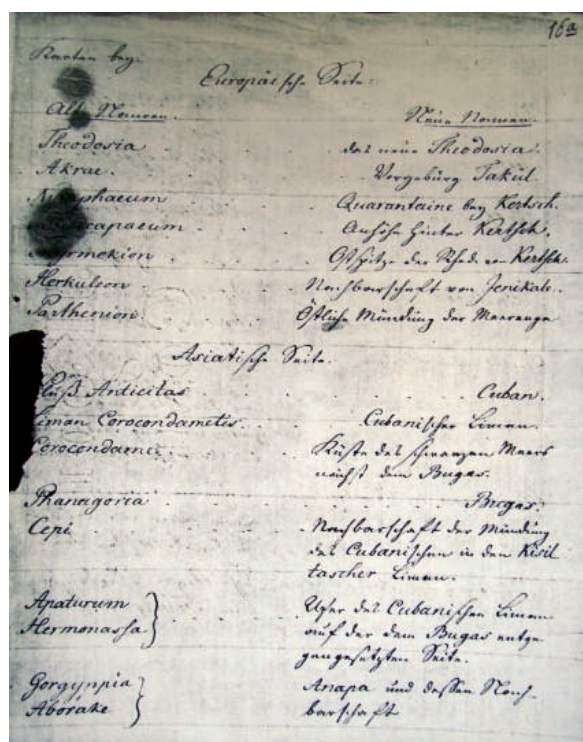 16a
Karten bey:
Europäische Seite:
Alte Namen. Neue Namen.
Theodosia . das neue Theodosia.
Akrae. . Vorgebürg Takül.
Nymphaeum Quarantaine bey Kertsch.
capaeum . Anhöhe hinter Kertsch.
Myrmekion . . Ostspitze der Rhed. von Kertsch.
Herkuleon . . Nachbarschaft von Jenikale.
Parthenion. . . Östliche Mündung der Meerenge
Asiatische Seite.
Fluß Anticitas . . . . . Cuban.
Liman Corocondametis. . . Cubanischer Liman.
Corocondama . . Küste des schwarzen Meers
nächst dem Bugas.
Phanagoria . . . . . . Bugas.
Cepi . Nachbarschaft der Mündung
des Cubanischen in den Kisil
tascher Liman.
Apaturum } . . Ufer des Cubanischen Liman
Hermonassa auf der dem Bugas entge
gengesetzten Seite.
Gorgyppia } Anapa und dessen Nach-
Aborake barschaft